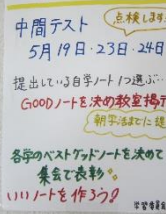 点検します
中間テスト
5月19日・23日・24日
提出している自学ノート1つ選ぶ…
GOODノートを決め教室掲示
朝学活までに提
各学のベストグッドノートを決めて
集会で表彰
いいノートを作ろう!
学習委員